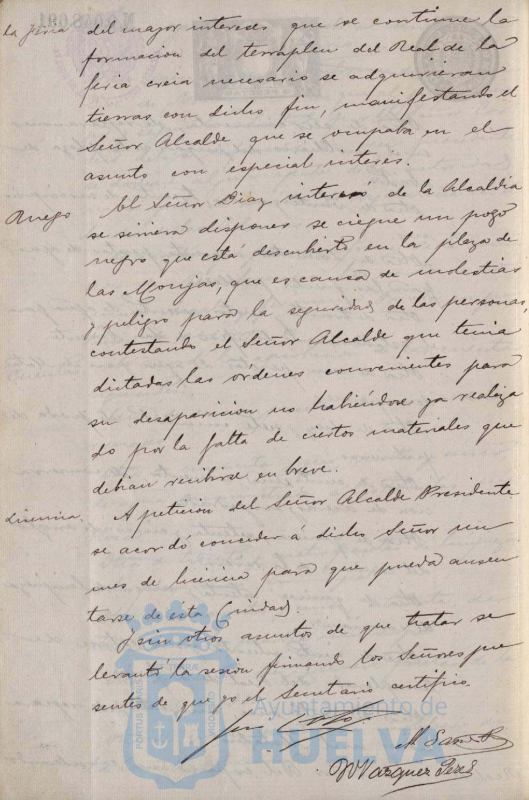 la feria
del mayor intereses que se continue la
formacion del terraplen del Real de la
feria creia necesario se adquirieran
tierras con dicho fin, manifestando el
Señor Alcalde que se ocupaba en el
asunto con especial interés.
Ruego
El Señor Diaz interesó de la Alcaldia
se sirviera disponer se ciegue un pozo
negro que está descubierto en la plaza de
las Monjas, que es causa de molestias
y peligro para la seguridad de las personas,
contestando el Señor Alcalde que tenia
dictadas las órdenes convenientes para
su desaparicion no habiéndose ya realiza
do por la falta de ciertos materiales que
debian recibirse en breve.
Licencia.
A peticion del Señor Alcalde Presidente
se acordó conceder á dicho Señor un
mes de licencia para que pueda ausen
tarse de esta Ciudad.
Y sin otros asuntos de que tratar se
levantó la sesion firmando los Señores pre
sentes de que yo el Secretario certifico.
M.
Vazquez Perez
Ayuntamiento de
HUELVA
PORTUS